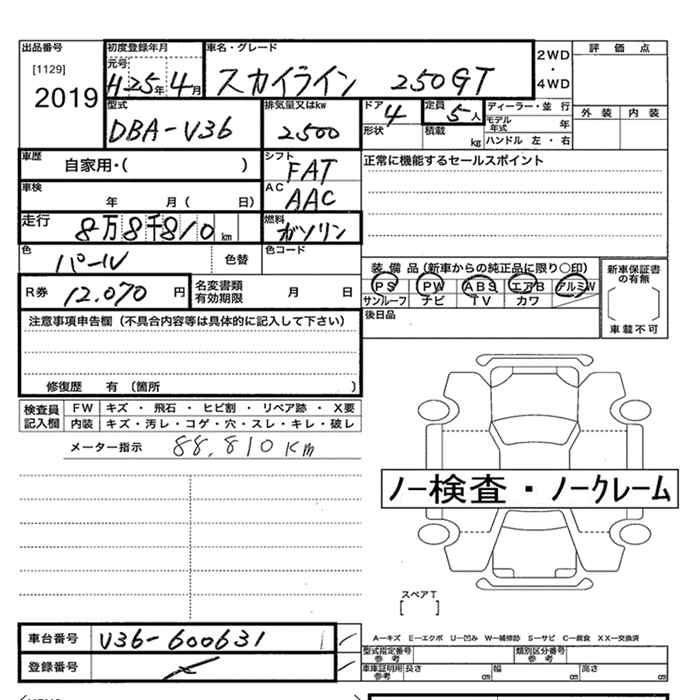 出品番号 初度登録年月 車名・グレード 2WD・4WD 評価点
[1129] 元号
2019 H25年4月 スカイライン 250GT
型式 排気量又はkw ドア 定員 ディーラー・並行 外装 内装
DBA-V36 2500 4 5人 モデル年式 年
形状 積載 kg ハンドル 左・右
車歴 自家用・( ) シフト FAT 正常に機能するセールスポイント
車検 年 月 ( 日) AC AAC
走行 8万8千810km 燃料 ガソリン
色 パール 色替 色コード
装備品(新車からの純正品に限り○印) 新車保証書の有無
R券 12,070円 名変書類有効期限 月 日 PS PW ABS エアB アルミW
サンルーフ ナビ TV カワ
後日品 車載不可
注意事項申告欄(不具合内容等は具体的に記入して下さい)
修復歴 有 (箇所 )
検査員記入欄 FW キズ・飛石・ヒビ割・リペア跡・X要
内装 キズ・汚レ・コゲ・穴・スレ・キレ・破レ
メーター指示 88,810Km
ノー検査・ノークレーム
スペアT
[ ]
車台番号 V36-600631
A-キズ E-エクボ U-凹み W-補修跡 S-サビ C-腐食 XX-交換済
登録番号 型式指定番号参考 類別区分番号参考
車庫証明用参考 長さ cm 幅 cm 高さ cm